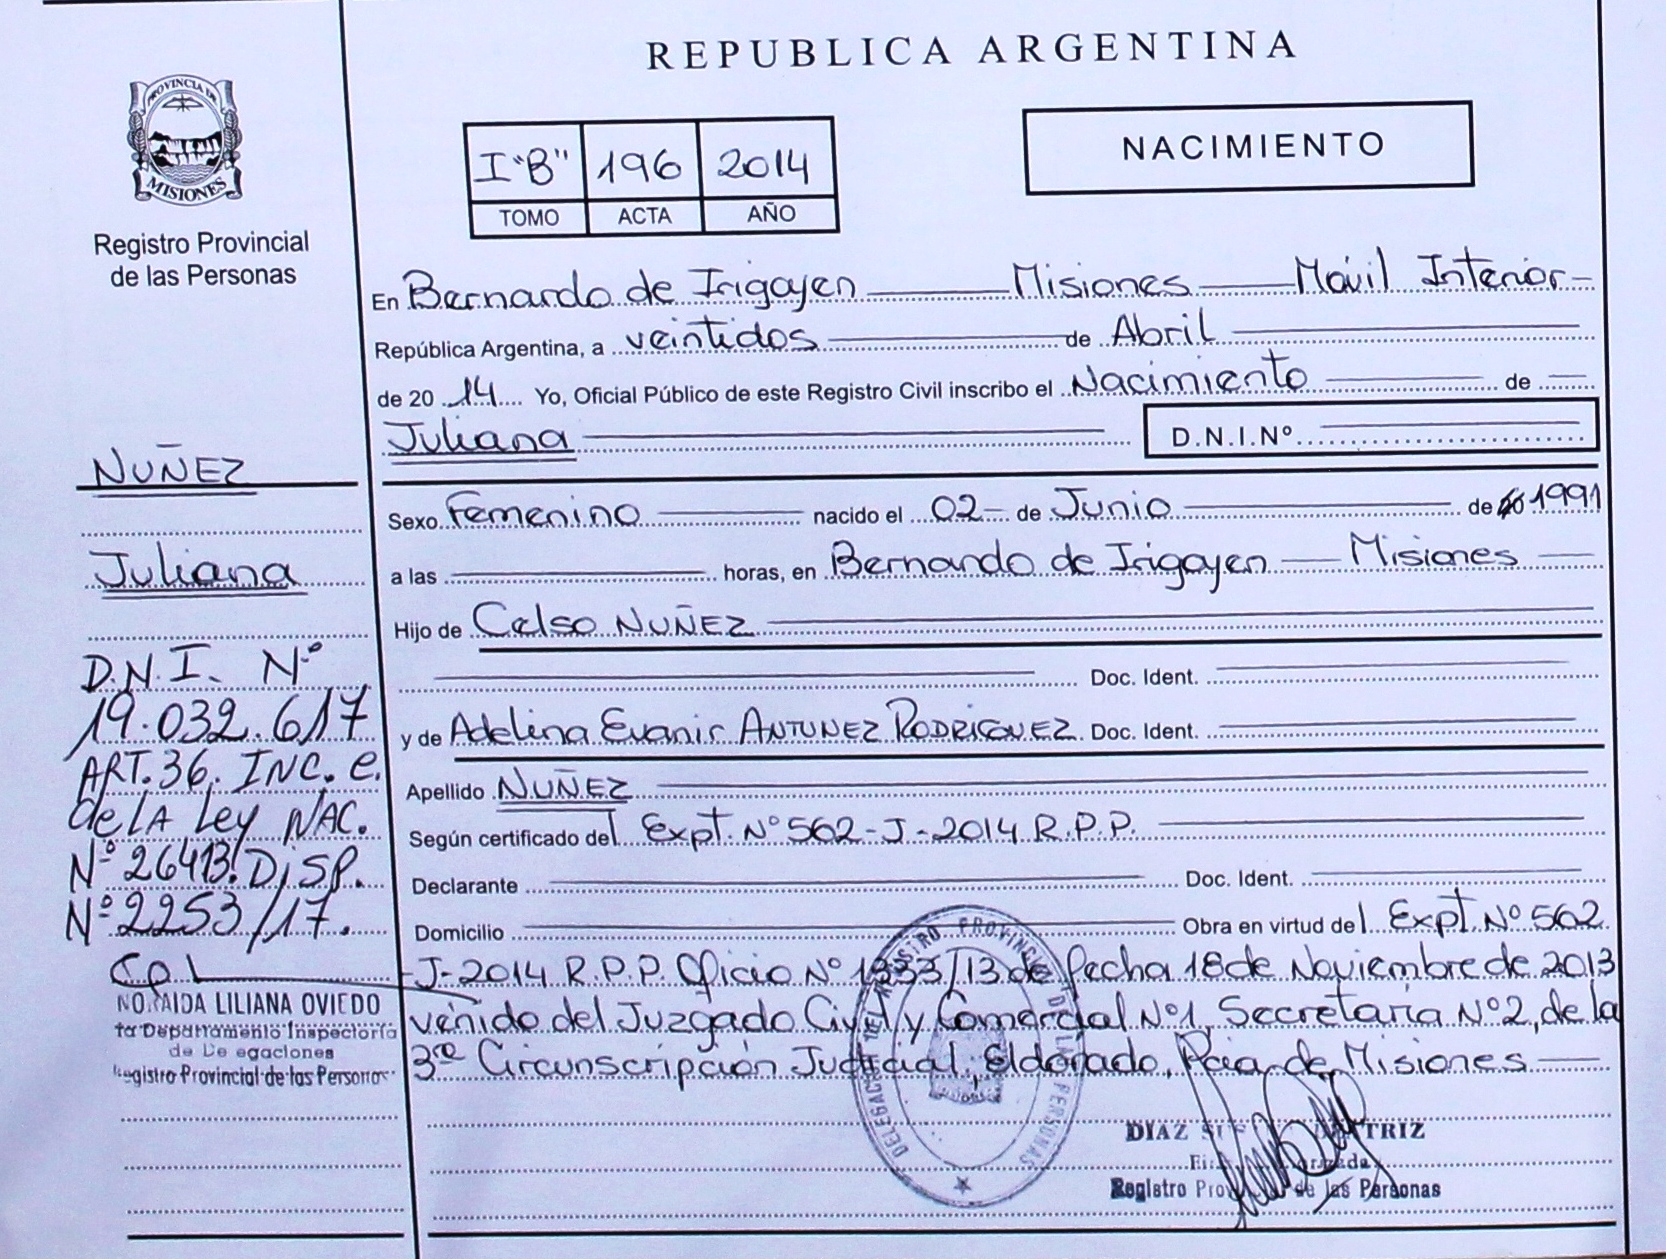 REPUBLICA ARGENTINA
PROVINCIA DE
MISIONES
Registro Provincial
de las Personas
I "B" 196 2014
TOMO ACTA AÑO
NACIMIENTO
En Bernardo de Irigoyen Misiones Móvil Interior
República Argentina, a veintidos de Abril
de 20 14 Yo, Oficial Público de este Registro Civil inscribo el Nacimiento de
Juliana D.N.I.Nº
Sexo Femenino nacido el 02 de Junio de 1991
a las horas, en Bernardo de Irigoyen Misiones
Hijo de Celso NUÑEZ
Doc. Ident.
y de Adelina Evanir ANTUNEZ RODRIGUEZ Doc. Ident.
Apellido NUÑEZ
Según certificado del Expt. Nº 562-J-2014 R.P.P.
Declarante Doc. Ident.
Domicilio Obra en virtud del Expt. Nº 562
-J-2014 R.P.P. Oficio Nº 1333/13 de fecha 18 de Noviembre de 2013
venido del Juzgado Civil y Comercial Nº1, Secretaria Nº2, de la
3ra Circunscripción Judicial, Eldorado, Pcia. de Misiones
NUÑEZ
Juliana
D.N.I. Nº
19.032.617
ART. 36. INC. e.
de LA Ley NAC.
Nº 26413. DISP.
Nº 2253/17.
NORAIDA LILIANA OVIEDO
Departamento Inspectoría
de Delegaciones
Registro Provincial de las Personas
DIAZ BEATRIZ
Registro Provincial de las Personas